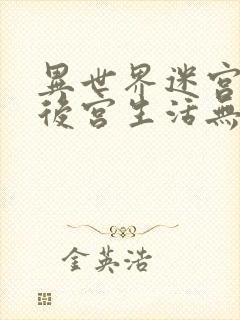 異世界迷宮
後宮生活無
金英浩